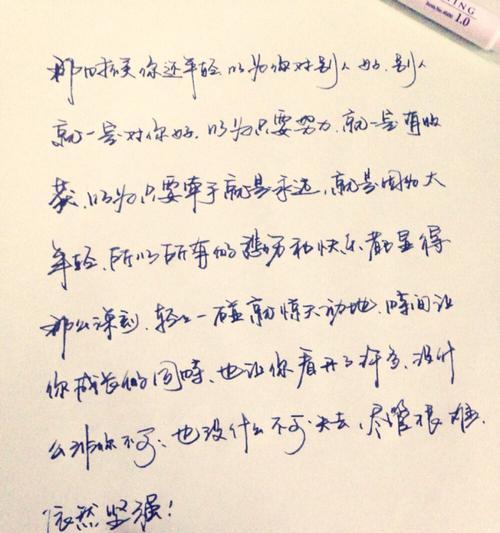 NING
1.0
那时候你还年轻.以为你对别人好.别人
就一定对你好.以为只要努力.就一定有收
获.以为只要牵手就是永远.就是因为太
年轻.所以所有的悲伤和快乐都显得
那么深刻.轻轻一碰就惊天动地.时间让
你成长的同时.也让你看开了许多.没什
么非你不可.也没什么不可失去.尽管很难.
依然坚强!